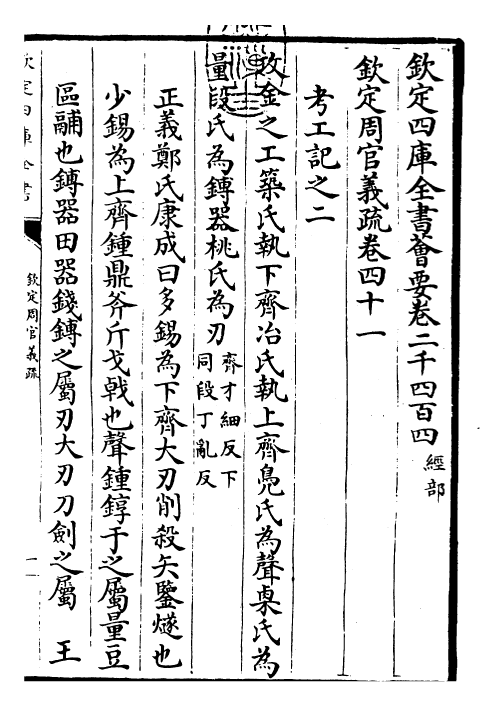 欽定四庫全書薈要卷二千四百四 經部
欽定周官義疏卷四十一
考工記之二
攻金之工築氏執下齊冶氏執上齊鳧氏為聲㮚氏為
量段氏為鎛器桃氏為刃 齊才細反下
同段丁亂反
正義鄭氏康成曰多錫為下齊大刃削殺矢鑒燧也
少錫為上齊鍾鼎斧斤戈戟也聲鍾錞于之屬量豆
區鬴也鎛器田器錢鎛之屬刃大刃刀劍之屬 王
欽定四庫全書
欽定周官義疏
一